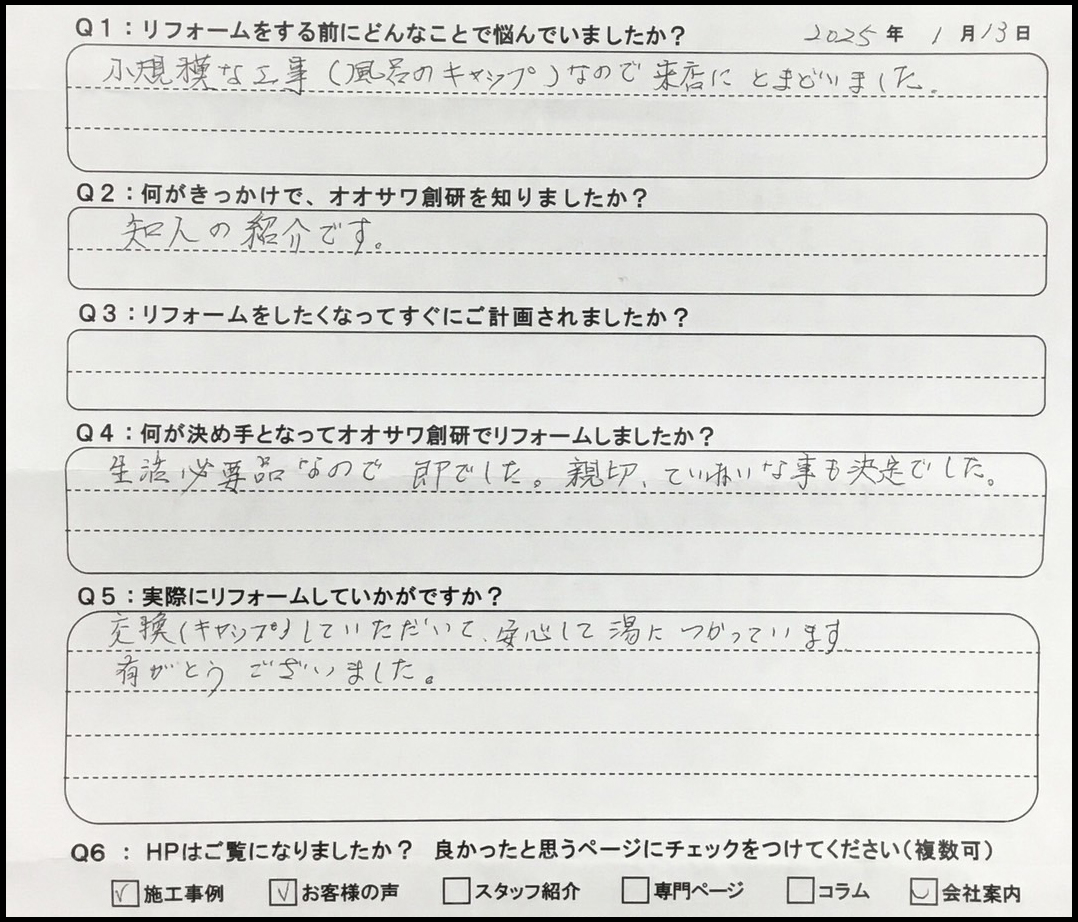 Q1：リフォームをする前にどんなことで悩んでいましたか？ 2025年 1月13日
小規模な工事(風呂のキャップ)なので来店にとまどいました。
Q2：何がきっかけで、オオサワ創研を知りましたか？
知人の紹介です。
Q3：リフォームをしたくなってすぐにご計画されましたか？
Q4：何が決め手となってオオサワ創研でリフォームしましたか？
生活必要品なので 即でした。親切、ていねいな事も決定でした。
Q5：実際にリフォームしていかがですか？
交換(キャップ)していただいて、安心して湯につかっています
有がとう ございました。
Q6 ： HPはご覧になりましたか？ 良かったと思うページにチェックをつけてください(複数可)
施工事例 お客様の声 スタッフ紹介 専門ページ コラム 会社案内